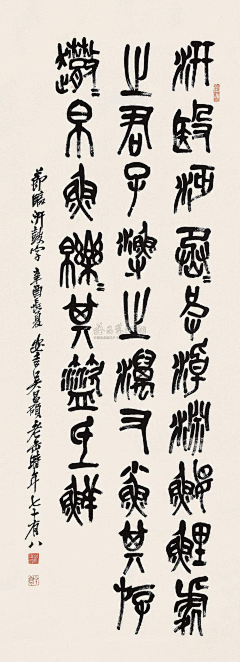 汧殹沔沔丞皮淖淵鰋鯉處
之君子漁之澫又小魚其斿
帛魚鱳鱳其盜氐鮮
節臨汧鼓字辛酉長夏安吉吳昌碩老缶時年七十有八